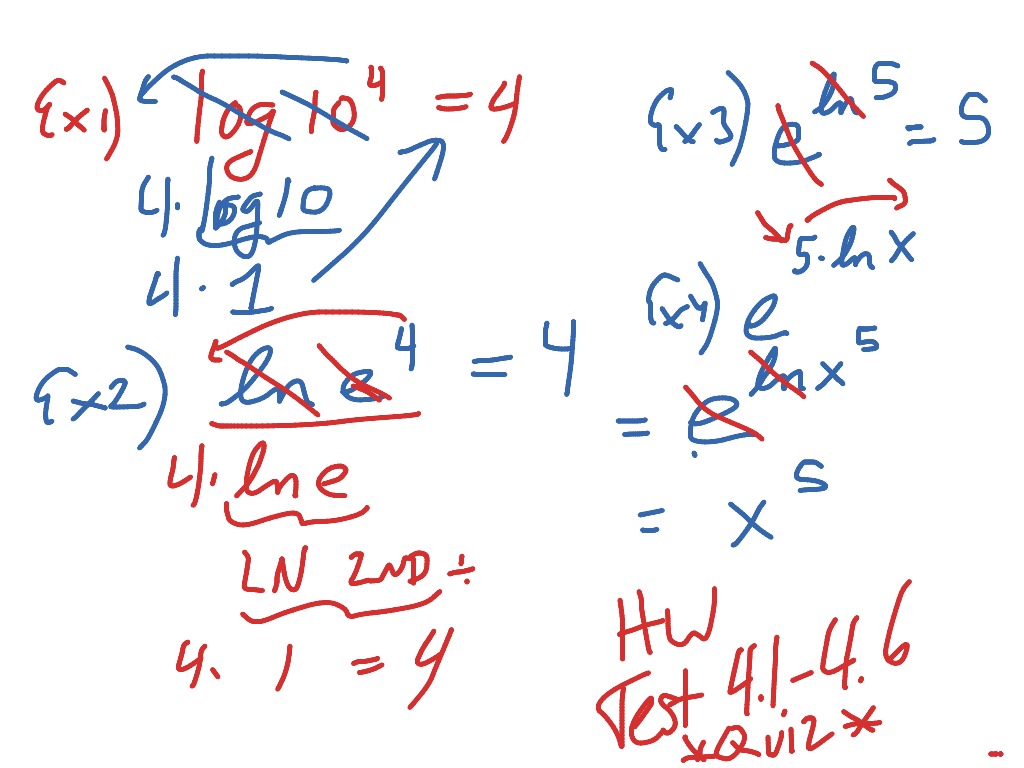 Ex1) log 10^4 = 4
4 · log 10
4 · 1
Ex2) ln e^4 = 4
4 · ln e
LN 2ND ÷
4 · 1 = 4
Ex3) e^ln 5 = 5
5 · ln x
Ex4) e^5 ln x
= e^ln x^5
= x^5
HW
Test 4.1 - 4.6
*Quiz*